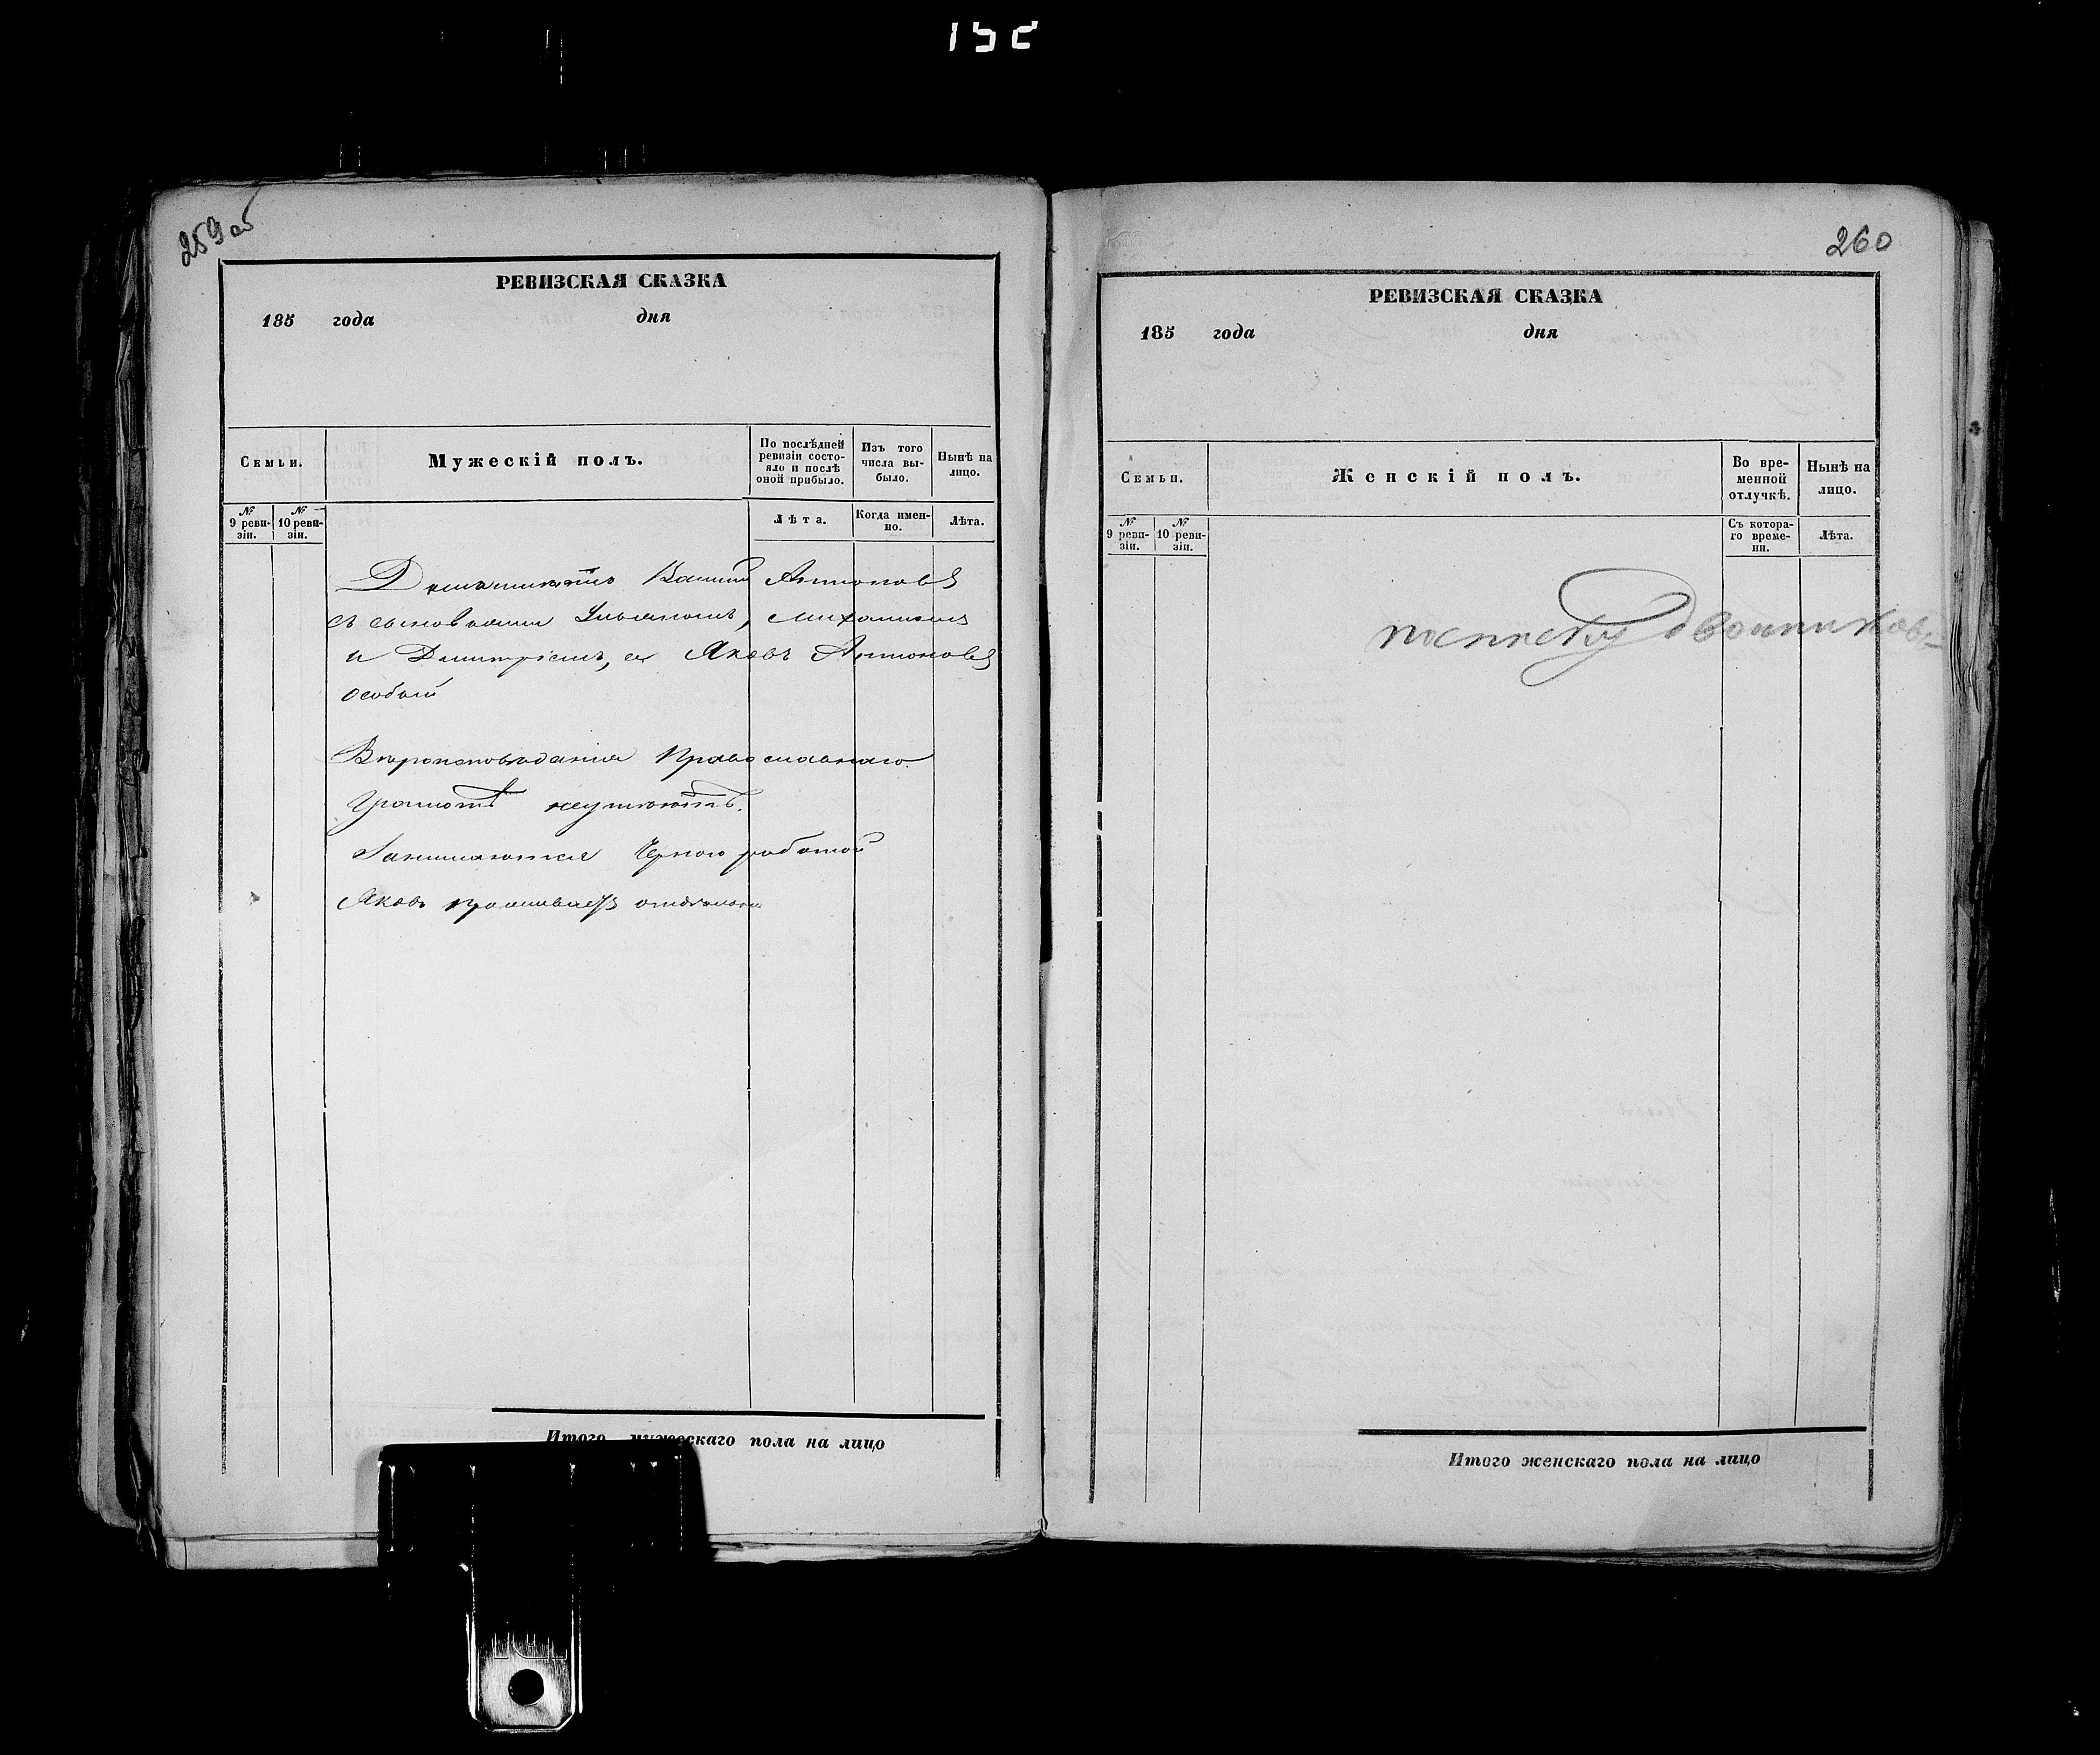 152
259 об
РЕВИЗСКАЯ СКАЗКА
185 года дня
Семьи.
Мужескій полъ.
По послѣдней ревизіи состояло и послѣ оной прибыло.
Изъ того числа выбыло.
Нынѣ на лицо.
№ 9 ревизіи.
№ 10 ревизіи.
Лѣта.
Когда именно.
Лѣта.
Антоновъ
съ сыновьями Ульяномъ, Михаиломъ
и Дмитріемъ, а Яковъ Антоновъ
особый
Вѣроисповѣданія Православнаго
Грамотѣ неумѣютъ.
Занимаются Черною работой
Яковъ проживаетъ отдѣльно
Итого мужескаго пола на лицо
260
РЕВИЗСКАЯ СКАЗКА
185 года дня
Семьи.
Женскій полъ.
Во временной отлучкѣ.
Нынѣ на лицо.
№ 9 ревизіи.
№ 10 ревизіи.
Съ котораго времени.
Лѣта.
Итого женскаго пола на лицо